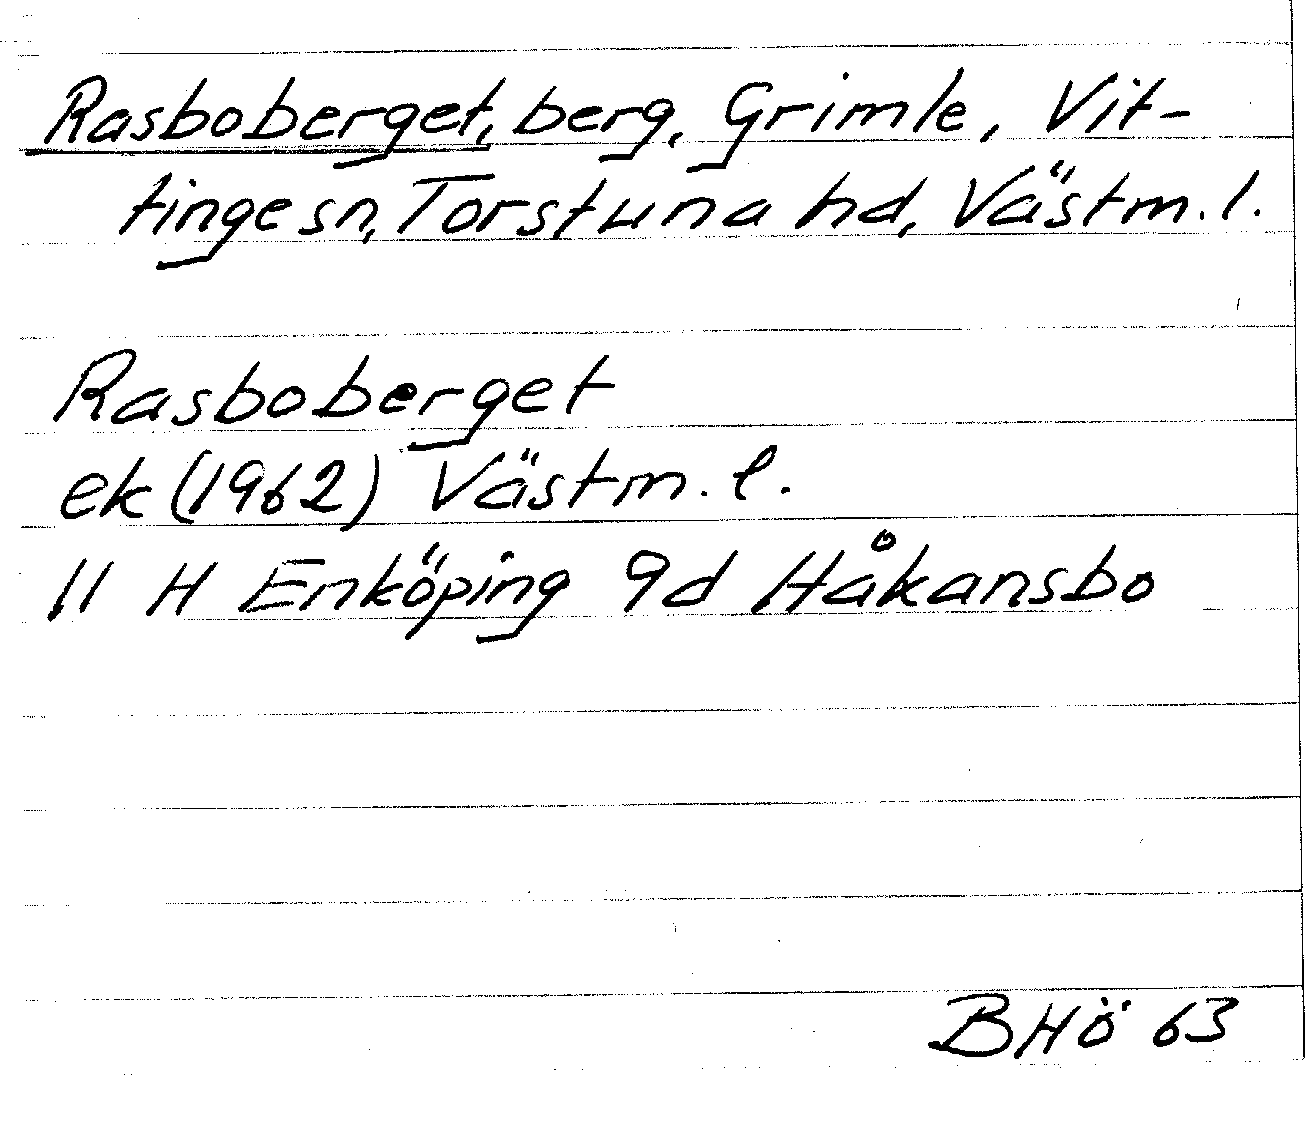 Rasboberget, berg, Grimle, Vit-
tinge sn, Torstuna hd, Västm. l.
Rasboberget
ek (1962) Västm. l.
11 H Enköping 9d Håkansbo
BHö 63